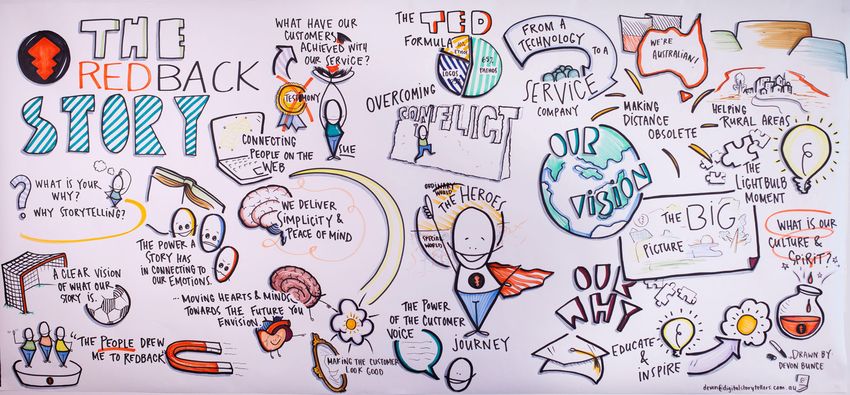 THE
REDBACK
STORY
WHAT HAVE OUR
CUSTOMERS
ACHIEVED WITH
OUR SERVICE?
TESTIMONY
SUE
THE TED
FORMULA
ETHOS
LOGOS
65%
PATHOS
OVERCOMING
CONFLICT
FROM A
TECHNOLOGY
TO A
SERVICE
COMPANY
WE'RE
AUSTRALIAN!
MAKING
DISTANCE
OBSOLETE
HELPING
RURAL AREAS
CONNECTING
PEOPLE ON THE
WEB
OUR
VISION
THE
LIGHTBULB
MOMENT
WHAT IS YOUR
WHY?
WHY STORYTELLING?
THE POWER A
STORY HAS
IN CONNECTING TO
OUR EMOTIONS.
WE DELIVER
SIMPLICITY &
PEACE OF MIND
ORDINARY
WORLD
SPECIAL
WORLD
THE HEROES
JOURNEY
THE BIG
PICTURE
WHAT IS OUR
CULTURE &
SPIRIT?
A CLEAR VISION
OF WHAT OUR
STORY IS.
... MOVING HEARTS & MINDS
TOWARDS THE FUTURE YOU
ENVISION.
THE POWER
OF THE CUSTOMER
VOICE
OUR
WHY
"THE PEOPLE DREW
ME TO REDBACK"
MAKING THE CUSTOMER
LOOK GOOD
EDUCATE
& INSPIRE
DRAWN BY:
DEVON BUNCE
devon@digitalstorytellers.com.au